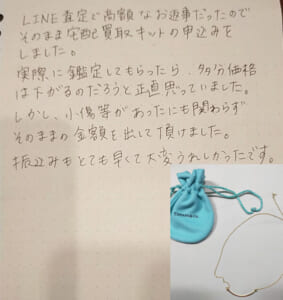 LINE査定で高額なお返事だったので
そのまま宅配買取キットの申込みを
しました。
実際に鑑定してもらったら、多分価格
は下がるのだろうと正直思っていました。
しかし、小傷等があったにも関わらず
そのままの金額を出して頂けました。
振込みもとても早くて大変うれしかったです。
TIFFANY & CO.